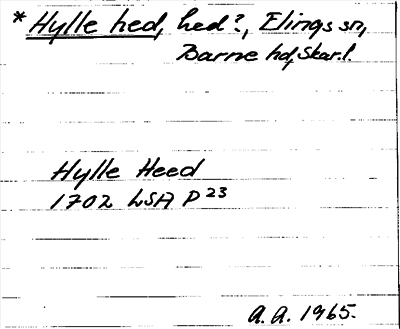 * Hylle hed, hed?, Elings sn,
Barne hd, Skar.l.
Hylle Heed
1702 LSA P 23
a.a. 1965.